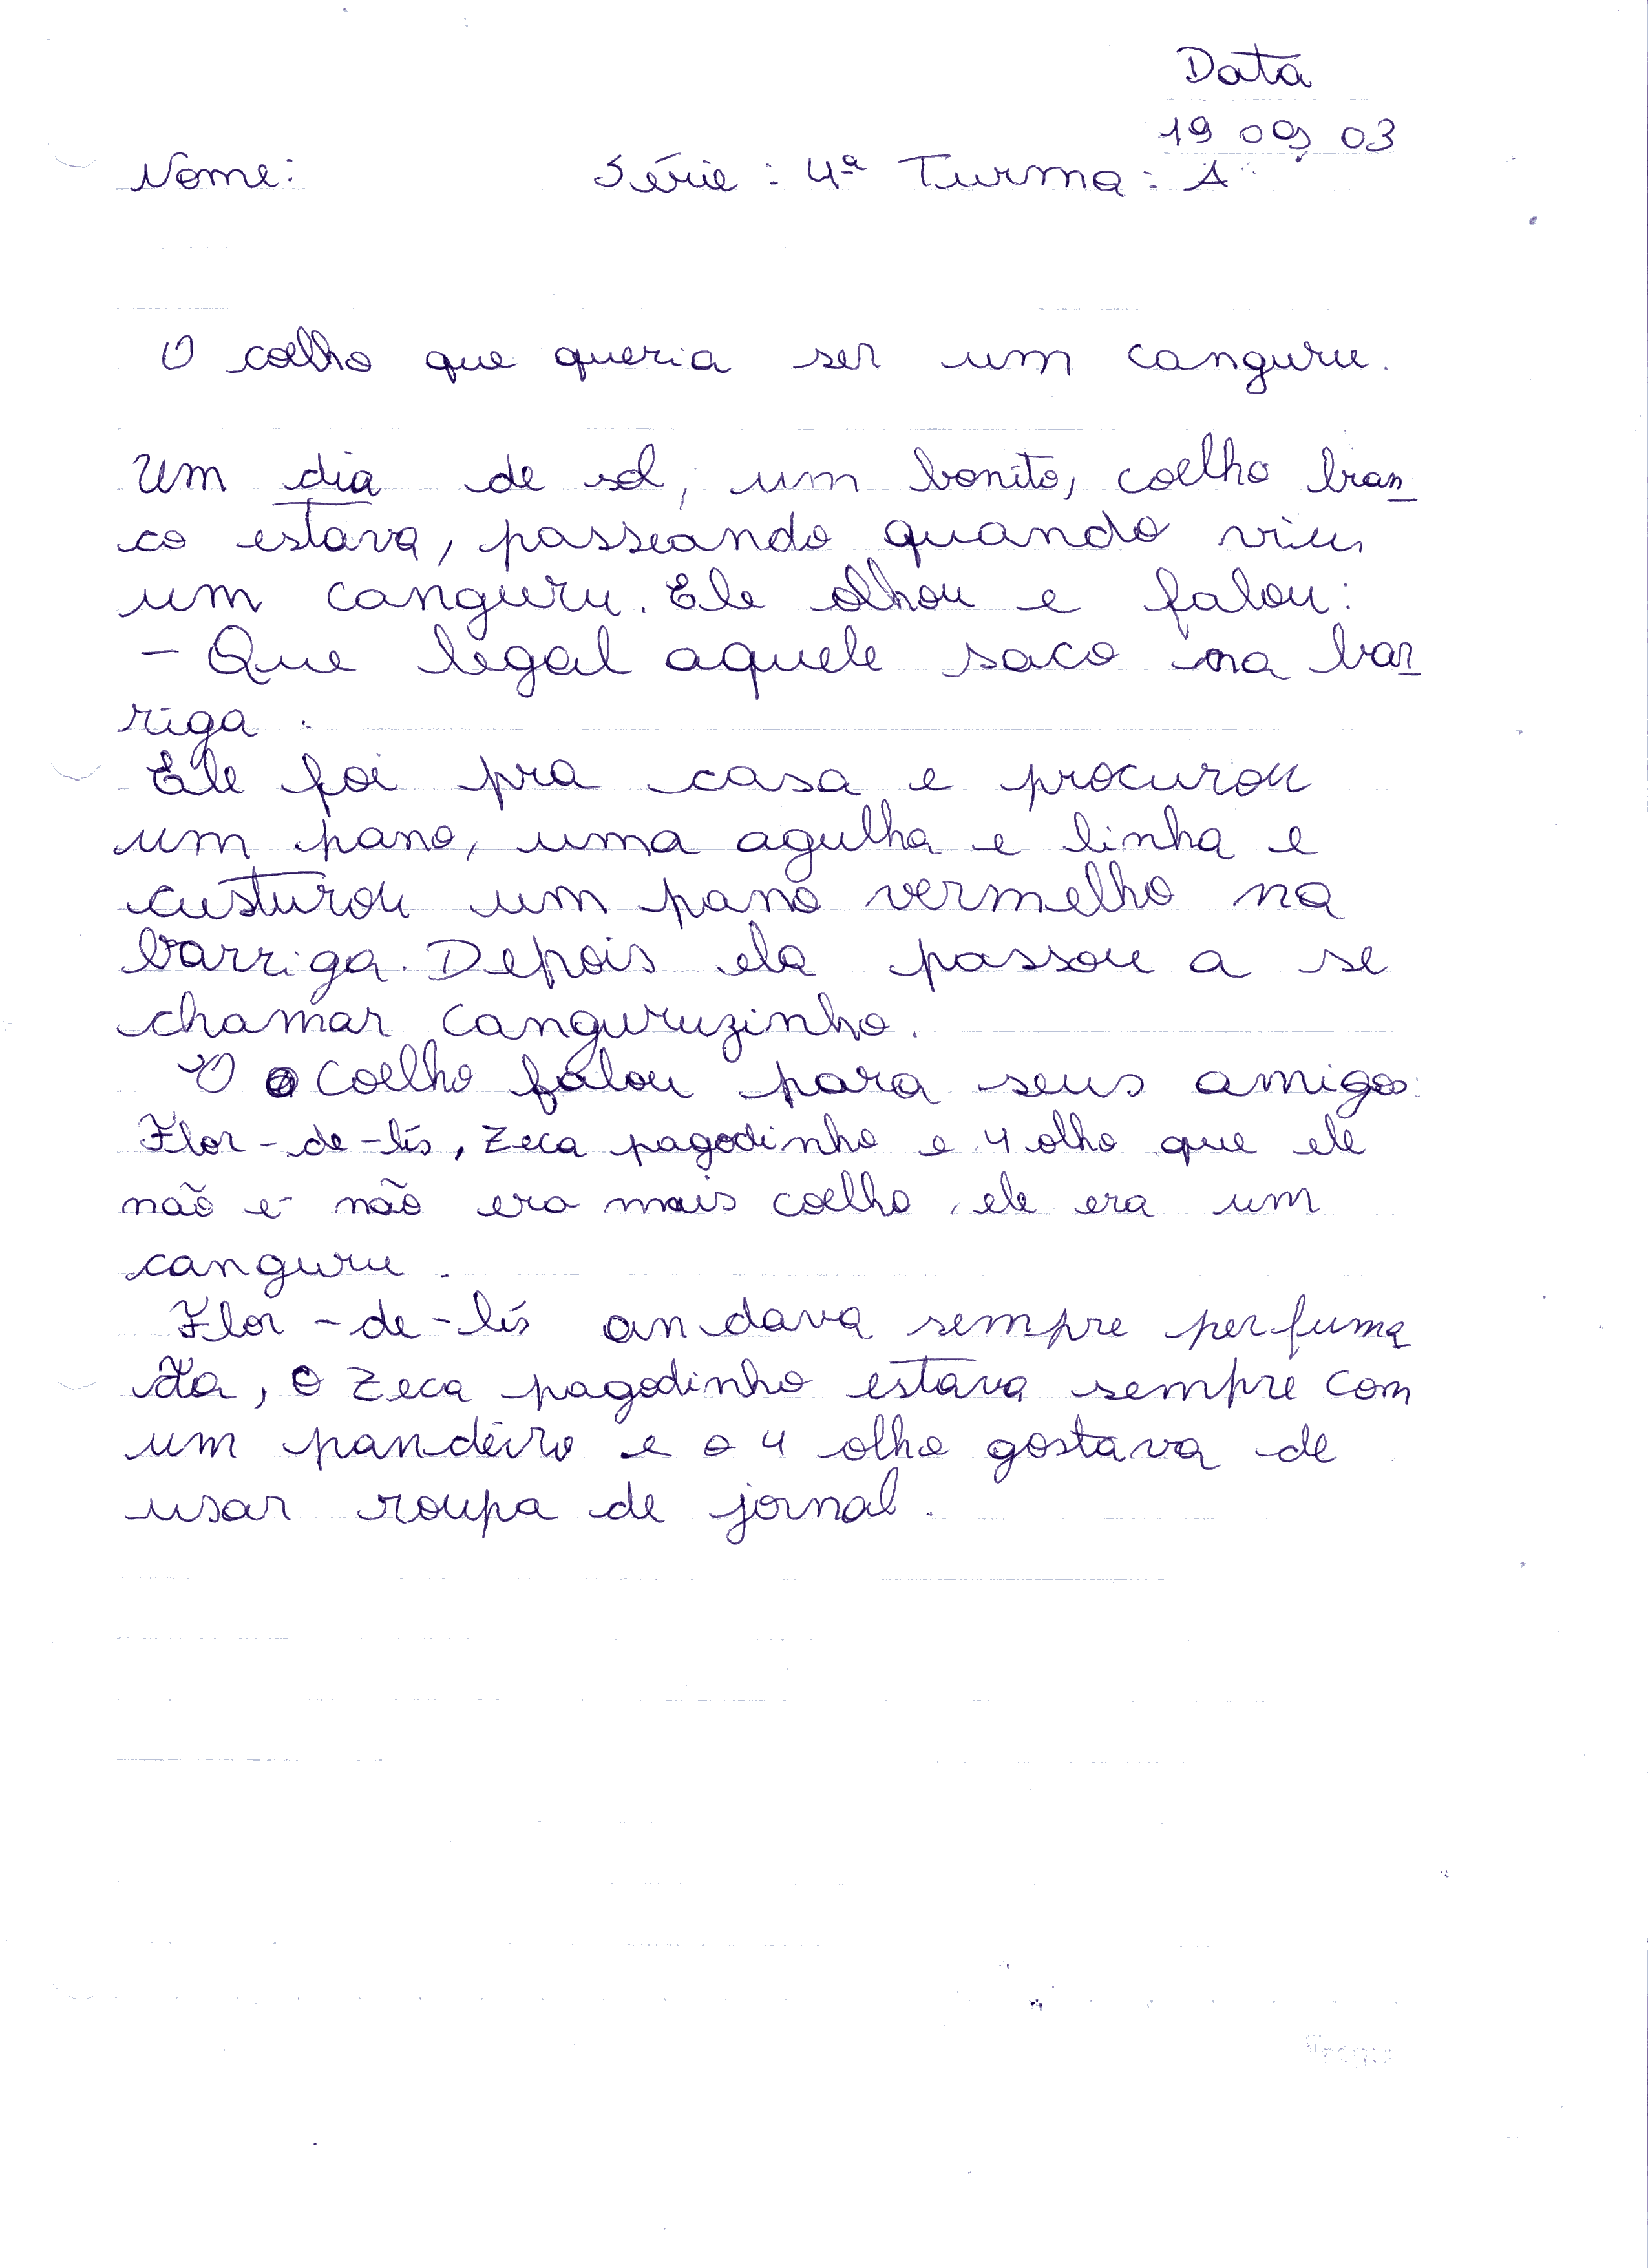 Data
19 09 03
Nome: Série: 4ª Turma: A
O coelho que queria ser um canguru.
Um dia de sol, um bonito, coelho bran
co estava, passeando quando viu
um canguru. Ele olhou e falou:
- Que legal aquele saco na bar
riga.
Ele foi pra casa e procurou
um pano, uma agulha e linha e
custurou um pano vermelho na
barriga. Depois ela passou a se
chamar canguruzinho.
O coelho falou para seus amigos:
Flor-de-lís, Zeca pagodinho e 4 olho que ele
não é não era mais coelho, ele era um
canguru.
Flor-de-lís andava sempre perfuma
da, o Zeca pagodinho estava sempre com
um pandeiro e o 4 olho gostava de
usar roupa de jornal.